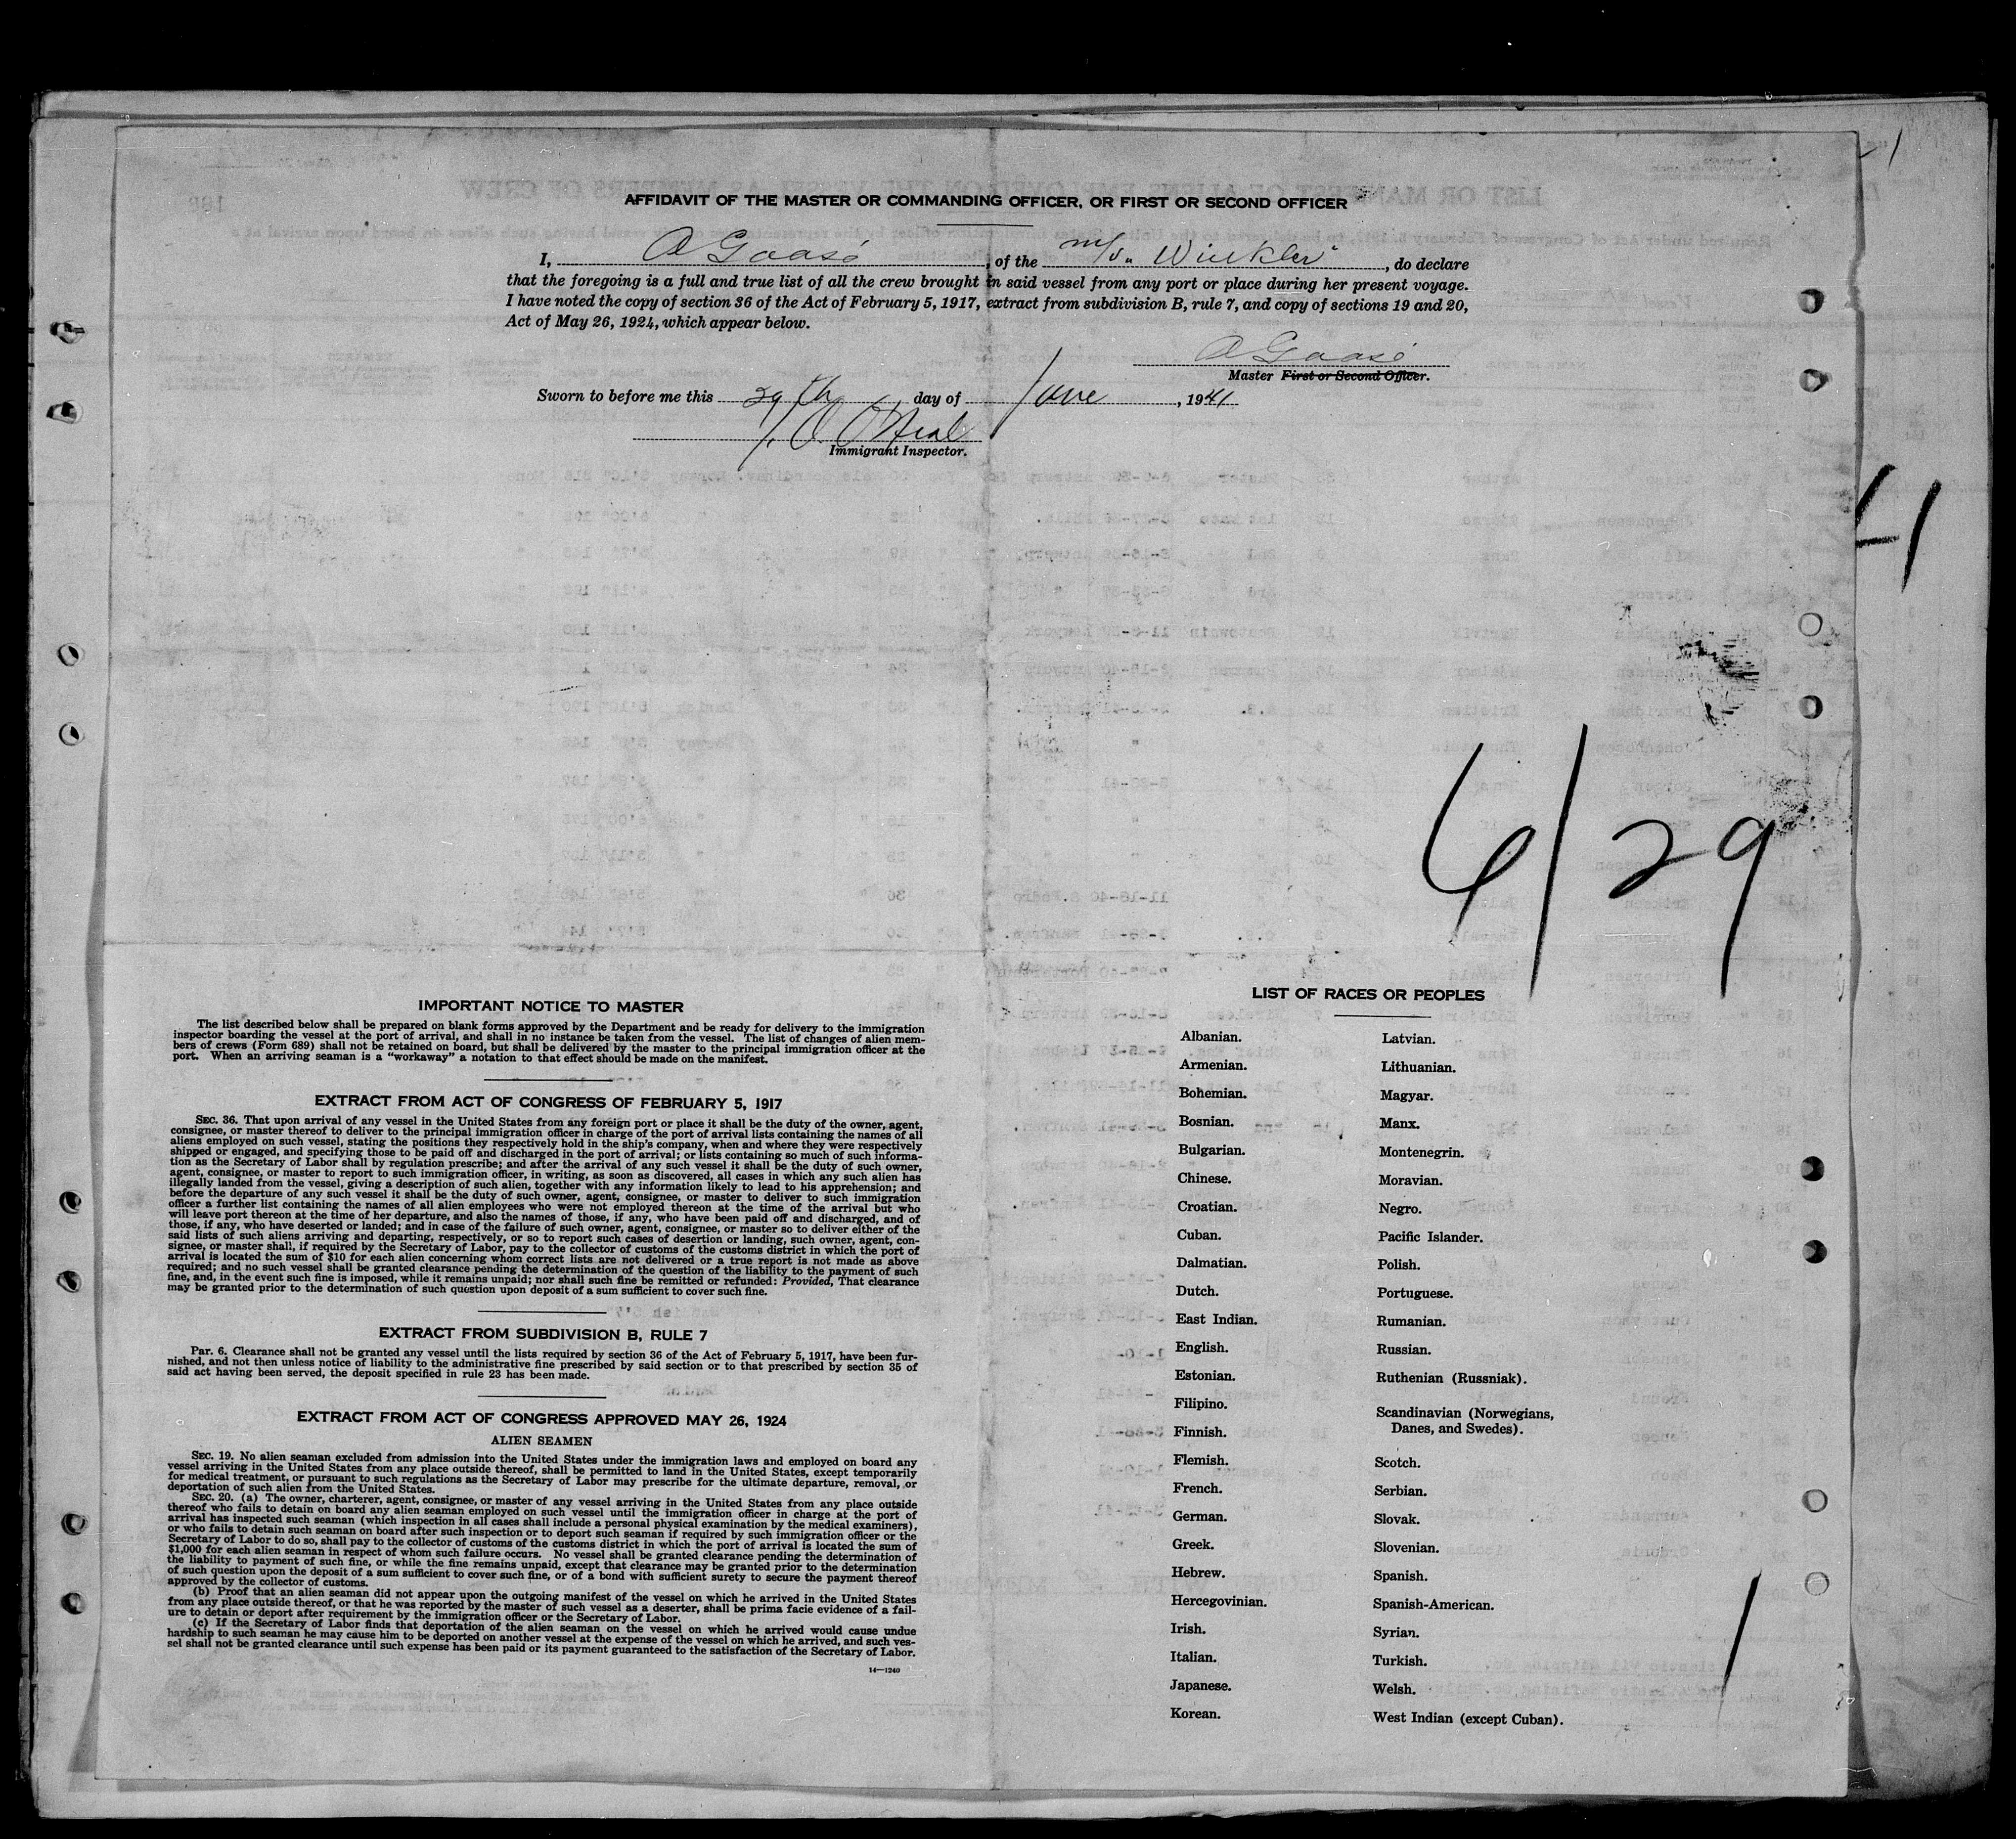 AFFIDAVIT OF THE MASTER OR COMMANDING OFFICER, OR FIRST OR SECOND OFFICER
I, A Gaasö, of the m/s „Winkler", do declare
that the foregoing is a full and true list of all the crew brought in said vessel from any port or place during her present voyage.
I have noted the copy of section 36 of the Act of February 5, 1917, extract from subdivision B, rule 7, and copy of sections 19 and 20,
Act of May 26, 1924, which appear below.
A Gaasö
Master First or Second Officer.
Sworn to before me this 29th day of June, 1941
O'Neal
Immigrant Inspector.
41
6/29
IMPORTANT NOTICE TO MASTER
The list described below shall be prepared on blank forms approved by the Department and be ready for delivery to the immigration
inspector boarding the vessel at the port of arrival, and shall in no instance be taken from the vessel. The list of changes of alien mem-
bers of crews (Form 689) shall not be retained on board, but shall be delivered by the master to the principal immigration officer at the
port. When an arriving seaman is a "workaway" a notation to that effect should be made on the manifest.
EXTRACT FROM ACT OF CONGRESS OF FEBRUARY 5, 1917
SEC. 36. That upon arrival of any vessel in the United States from any foreign port or place it shall be the duty of the owner, agent,
consignee, or master thereof to deliver to the principal immigration officer in charge of the port of arrival lists containing the names of all
aliens employed on such vessel, stating the positions they respectively hold in the ship's company, when and where they were respectively
shipped or engaged, and specifying those to be paid off and discharged in the port of arrival; or lists containing so much of such informa-
tion as the Secretary of Labor shall by regulation prescribe; and after the arrival of any such vessel it shall be the duty of such owner,
agent, consignee, or master to report to such immigration officer, in writing, as soon as discovered, all cases in which any such alien has
illegally landed from the vessel, giving a description of such alien, together with any information likely to lead to his apprehension; and
before the departure of any such vessel it shall be the duty of such owner, agent, consignee, or master to deliver to such immigration
officer a further list containing the names of all alien employees who were not employed thereon at the time of the arrival but who
will leave port thereon at the time of her departure, and also the names of those, if any, who have been paid off and discharged, and of
those, if any, who have deserted or landed; and in case of the failure of such owner, agent, consignee, or master so to deliver either of the
said lists of such aliens arriving and departing, respectively, or so to report such cases of desertion or landing, such owner, agent, con-
signee, or master shall, if required by the Secretary of Labor, pay to the collector of customs of the customs district in which the port of
arrival is located the sum of $10 for each alien concerning whom correct lists are not delivered or a true report is not made as above
required; and no such vessel shall be granted clearance pending the determination of the question of the liability to the payment of such
fine, and, in the event such fine is imposed, while it remains unpaid; nor shall such fine be remitted or refunded: Provided, That clearance
may be granted prior to the determination of such question upon deposit of a sum sufficient to cover such fine.
EXTRACT FROM SUBDIVISION B, RULE 7
PAR. 6. Clearance shall not be granted any vessel until the lists required by section 36 of the Act of February 5, 1917, have been fur-
nished, and not then unless notice of liability to the administrative fine prescribed by said section or to that prescribed by section 35 of
said act having been served, the deposit specified in rule 23 has been made.
EXTRACT FROM ACT OF CONGRESS APPROVED MAY 26, 1924
ALIEN SEAMEN
SEC. 19. No alien seaman excluded from admission into the United States under the immigration laws and employed on board any
vessel arriving in the United States from any place outside thereof, shall be permitted to land in the United States, except temporarily
for medical treatment, or pursuant to such regulations as the Secretary of Labor may prescribe for the ultimate departure, removal, or
deportation of such alien from the United States.
SEC. 20. (a) The owner, charterer, agent, consignee, or master of any vessel arriving in the United States from any place outside
thereof who fails to detain on board any alien seaman employed on such vessel until the immigration officer in charge at the port of
arrival has inspected such seaman (which inspection in all cases shall include a personal physical examination by the medical examiners),
or who fails to detain such seaman on board after such inspection or to deport such seaman if required by such immigration officer or the
Secretary of Labor to do so, shall pay to the collector of customs of the customs district in which the port of arrival is located the sum of
$1,000 for each alien seaman in respect of whom such failure occurs. No vessel shall be granted clearance pending the determination of
the liability to payment of such fine, or while the fine remains unpaid, except that clearance may be granted prior to the determination
of such question upon the deposit of a sum sufficient to cover such fine, or of a bond with sufficient surety to secure the payment thereof
approved by the collector of customs.
(b) Proof that an alien seaman did not appear upon the outgoing manifest of the vessel on which he arrived in the United States
from any place outside thereof, or that he was reported by the master of such vessel as a deserter, shall be prima facie evidence of a fail-
ure to detain or deport after requirement by the immigration officer or the Secretary of Labor.
(c) If the Secretary of Labor finds that deportation of the alien seaman on the vessel on which he arrived would cause undue
hardship to such seaman he may cause him to be deported on another vessel at the expense of the vessel on which he arrived, and such ves-
sel shall not be granted clearance until such expense has been paid or its payment guaranteed to the satisfaction of the Secretary of Labor.
14—1240
LIST OF RACES OR PEOPLES
Albanian.
Armenian.
Bohemian.
Bosnian.
Bulgarian.
Chinese.
Croatian.
Cuban.
Dalmatian.
Dutch.
East Indian.
English.
Estonian.
Filipino.
Finnish.
Flemish.
French.
German.
Greek.
Hebrew.
Hercegovinian.
Irish.
Italian.
Japanese.
Korean.
Latvian.
Lithuanian.
Magyar.
Manx.
Montenegrin.
Moravian.
Negro.
Pacific Islander.
Polish.
Portuguese.
Rumanian.
Russian.
Ruthenian (Russniak).
Scandinavian (Norwegians,
Danes, and Swedes).
Scotch.
Serbian.
Slovak.
Slovenian.
Spanish.
Spanish-American.
Syrian.
Turkish.
Welsh.
West Indian (except Cuban).